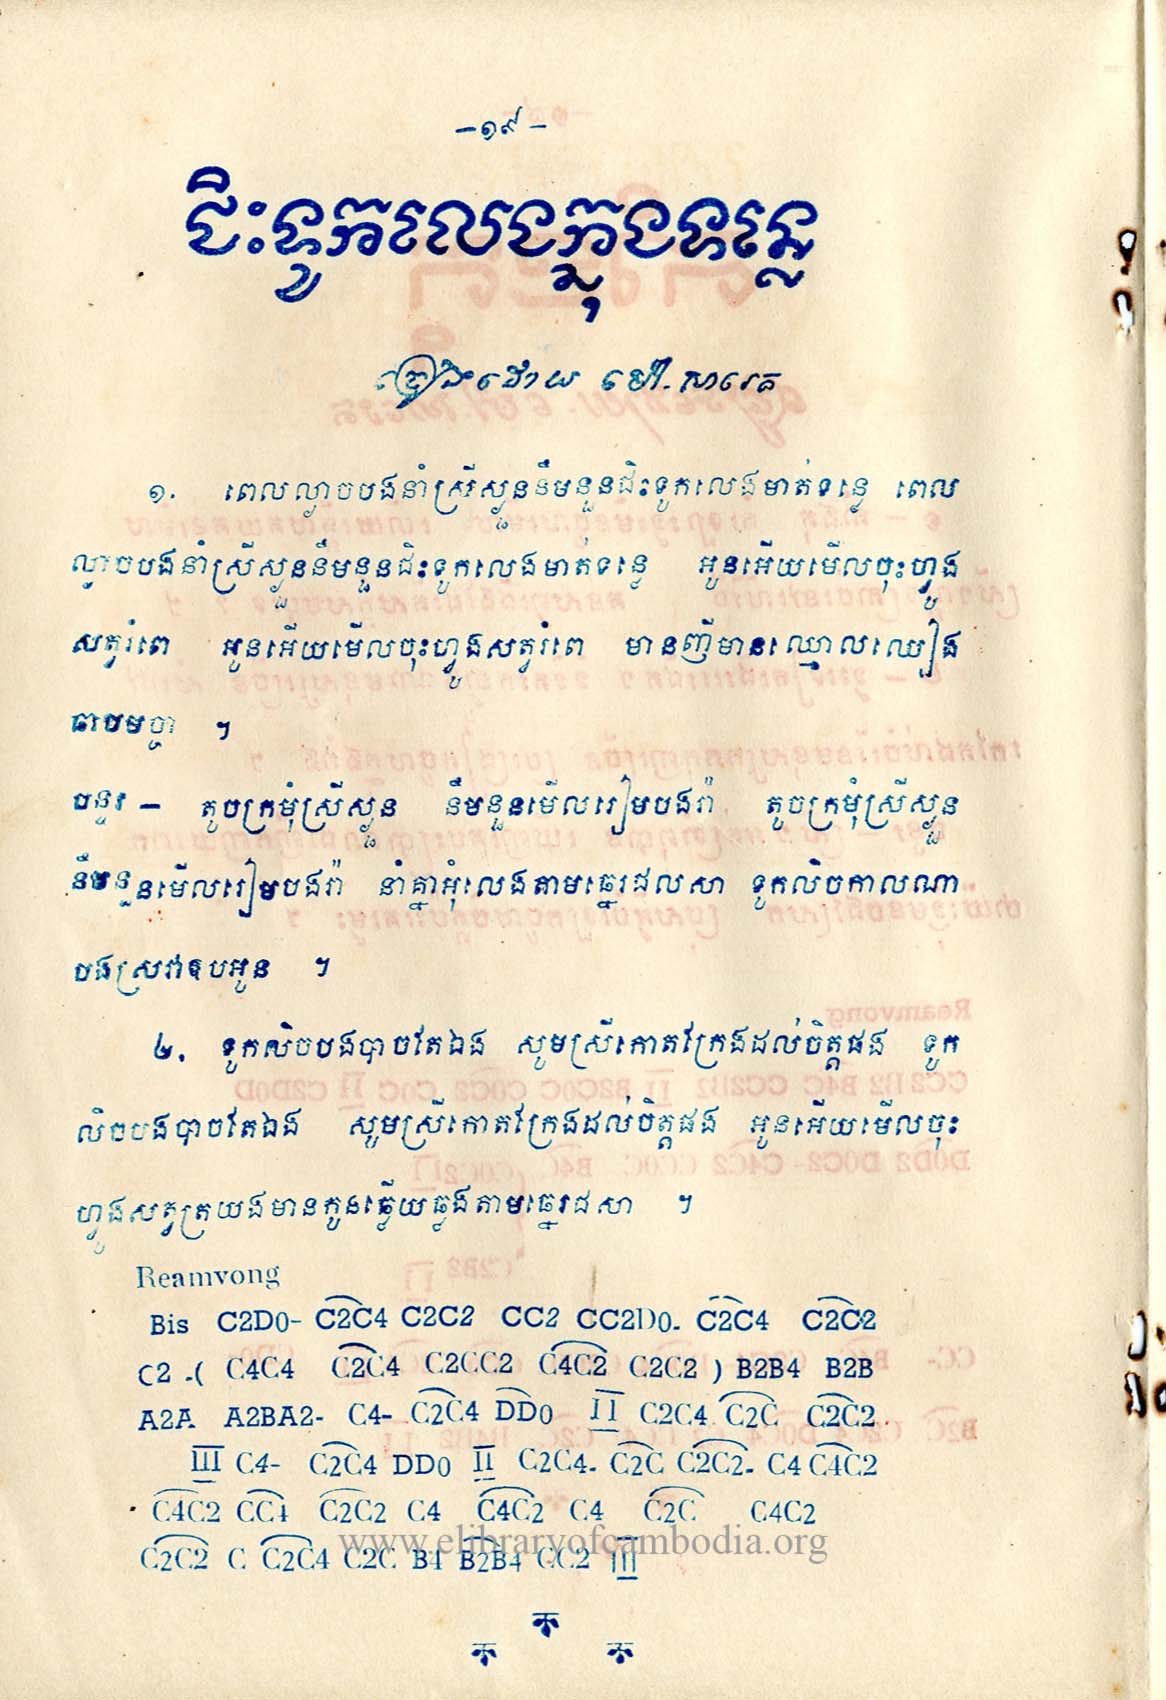 -១៩-
ជិះទូកលេងក្នុងទន្លេ
ច្រៀងដោយ មៅ.សារេត
១. ពេលល្ងាចបងនាំស្រីស្ងួននឹមនួនជិះទូកលេងមាត់ទន្លេ ពេល
ល្ងាចបងនាំស្រីស្ងួននឹមនួនជិះទូកលេងមាត់ទន្លេ អូនអើយមើលចុះហ្វូង
សត្វរំពេ អូនអើយមើលចុះហ្វូងសត្វរំពេ មានញីមានឈ្មោលឈៀង
ធារបមច្ចា ។
បន្ទរ - តូចក្រមុំស្រីស្ងួន នឹមនួនមើលរៀមបងរ៉ា តូចក្រមុំស្រីស្ងួន
នឹមនួនមើលរៀមបងរ៉ា នាំគ្នាអុំលេងតាមឆ្នេរជលសា ទូកលិចកាលណា
បងស្រវាឱបអូន ។
២. ទូកលិចបងបាចតែឯង សូមស្រីកោតក្រែងដល់ចិត្តផង ទូក
លិចបងបាចតែឯង សូមស្រីកោតក្រែងដល់ចិត្តផង អូនអើយមើលចុះ
ហ្វូងសត្វត្រយងមានកូនឆ្លើយឆ្លងតាមឆ្នេរជសា ។
Reamvong
Bis C2D0- C2C4 C2C2 CC2 CC2D0- C2C4 C2C2
C2 -( C4C4 C2C4 C2CC2 C4C2 C2C2 ) B2B4 B2B
A2A A2BA2- C4- C2C4 DD0 II C2C4 C2C C2C2
III C4- C2C4 DD0 II C2C4- C2C C2C2- C4 C4C2
C4C2 CC4 C2C2 C4 C4C2 C4 C2C C4C2
C2C2 C C2C4 C2C B4 B2B4 CC2 III
www.elibraryofcambodia.org